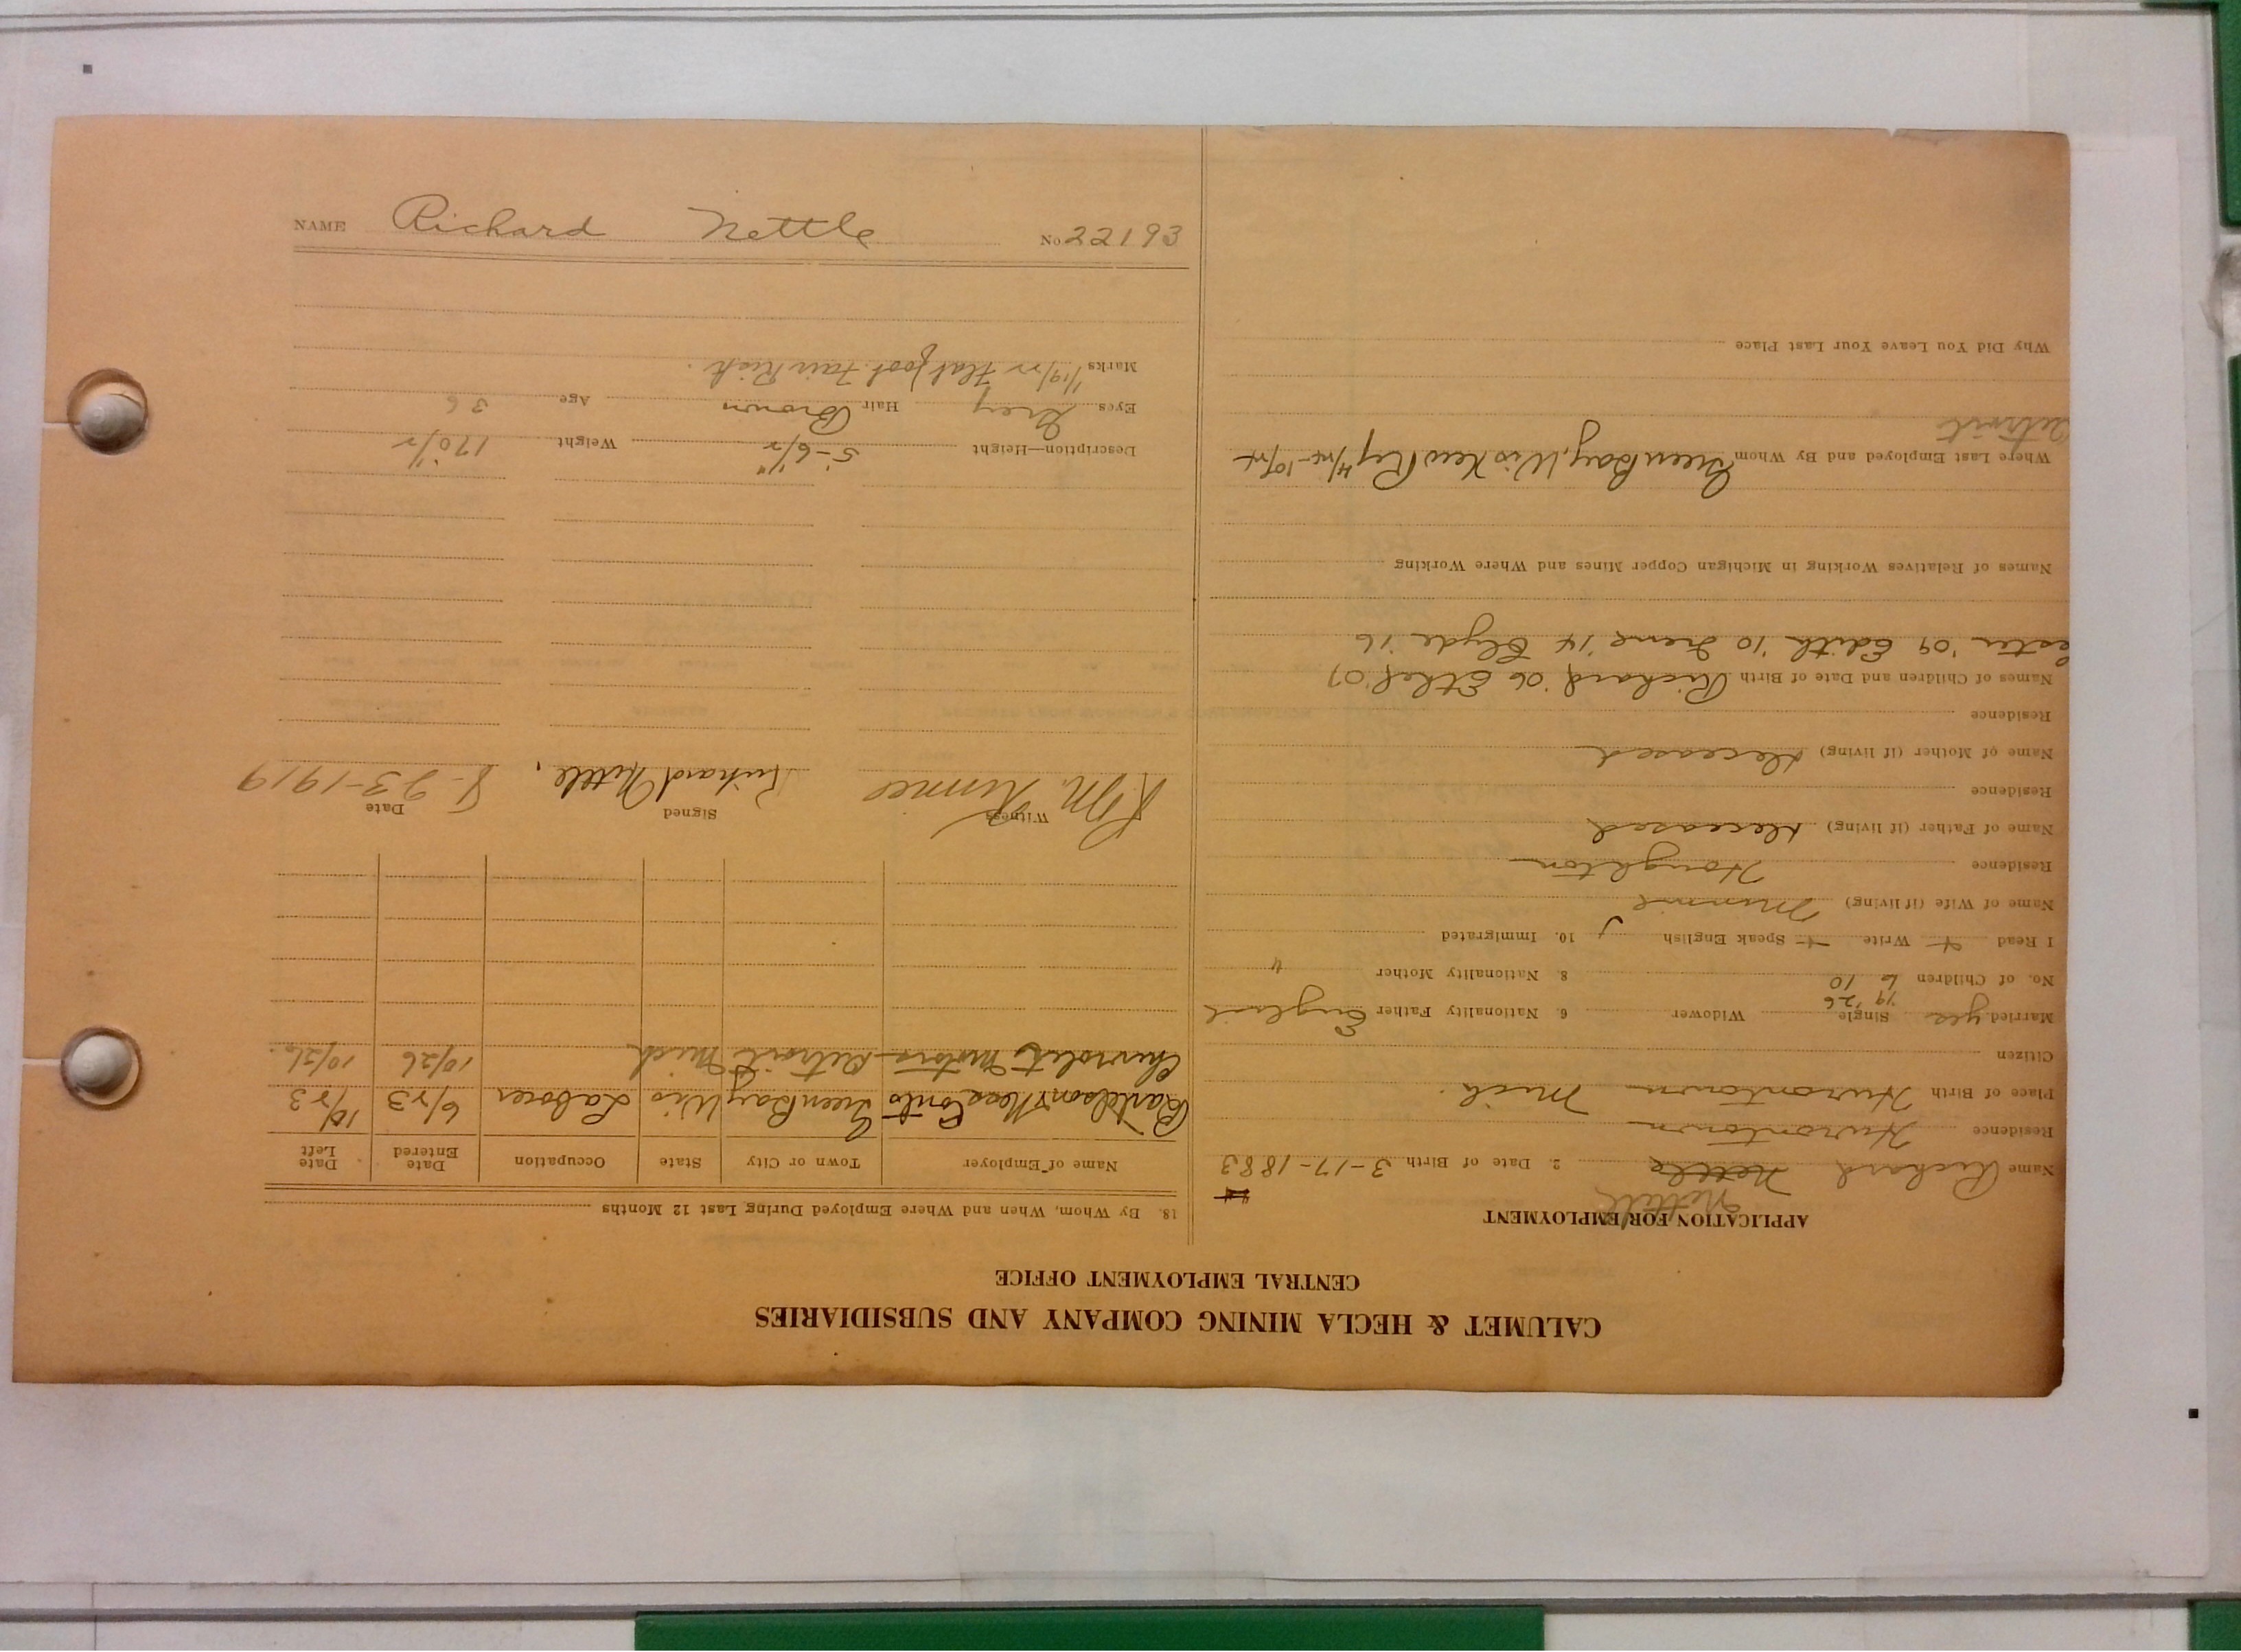 NAME Richard Nettle No 22193
CALUMET & HECLA MINING COMPANY AND SUBSIDIARIES
CENTRAL EMPLOYMENT OFFICE
APPLICATION FOR EMPLOYMENT
Name Richard Nettle 2. Date of Birth 3-17-1883
Residence Hurontown
Place of Birth Hurontown Mich.
Citizen
Married yes Single Widower 6. Nationality Father English
'19 '26
No. of Children 6 10 8. Nationality Mother "
I Read + Write + Speak English 10. Immigrated
Name of Wife (if living) Minnie
Residence Houghton
Name of Father (if living) Deceased
Residence
Name of Mother (if living) Deceased
Residence
Names of Children and Date of Birth Richard '06 Ethel '07
ester '09 Edith '10 Irene '14 Clyde '16
Names of Relatives Working in Michigan Copper Mines and Where Working
Where Last Employed and By Whom Green Bay, Wis
Detroit
Why Did You Leave Your Last Place
18. By Whom, When and Where Employed During Last 12 Months
Name of Employer Town or City State Occupation Date Entered Date Left
Green Bay Wis Laborer 6/23 10/23
Chevrolet Motors Detroit Mich 10/26 10/26.
Witness Signed Date
Richard Nettle, 8-23-1919
Description—Height 5'-6 1/2" Weight 170 1/2
Eyes Grey Hair Brown Age 36
Marks Flat foot. Fair Risk.